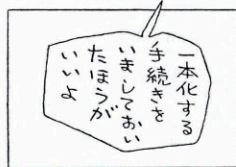 一本化する
手続きを
いましておい
たほうが
いいよ